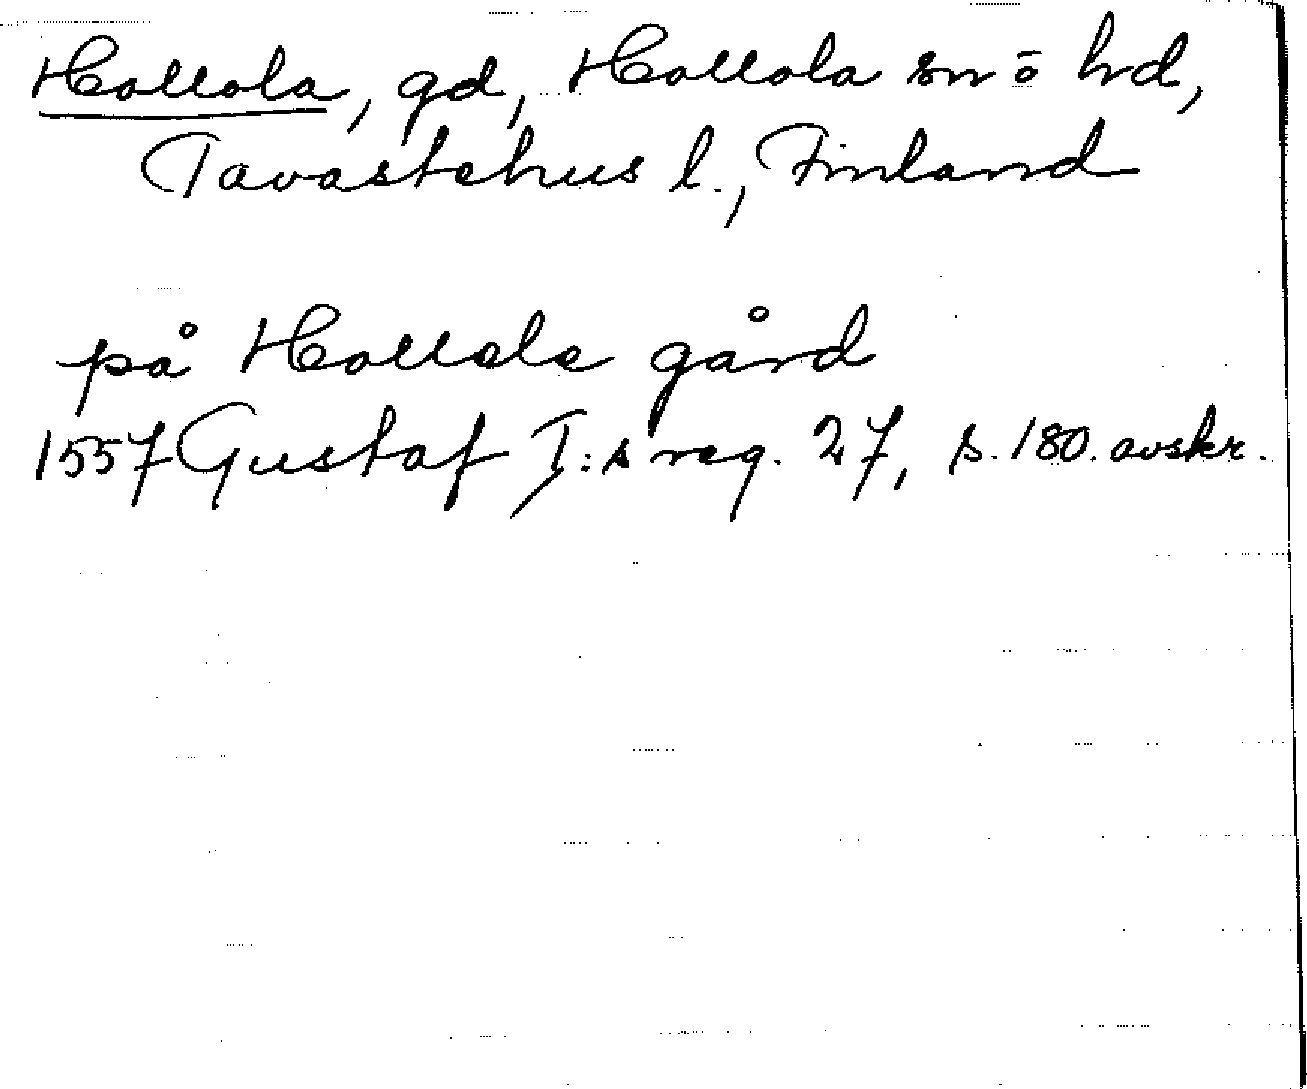 Hollola, gd, Hollola sn ō hd,
Tavastehus l., Finland
på Hollola gård
1557 Gustaf I:s reg. 27, s. 180. avskr.